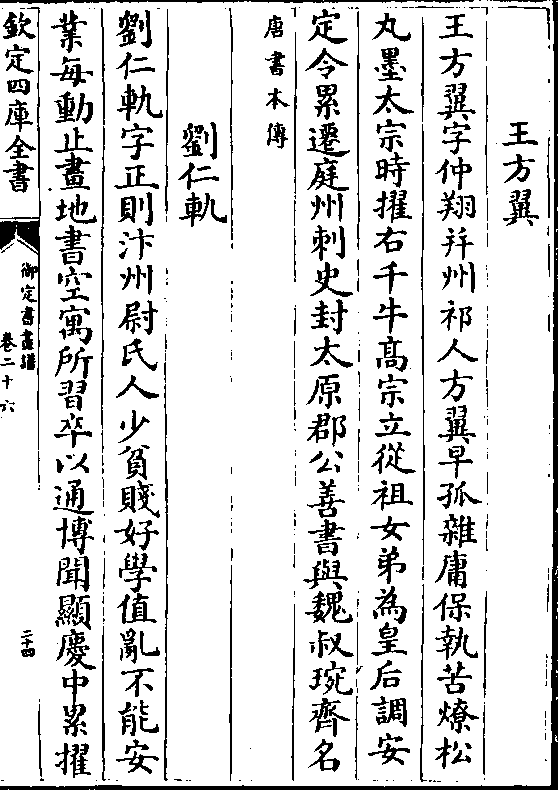 王方翼
王方翼字仲翔并州祁人方翼早孤雜庸保執苦燎松
丸墨太宗時擢右千牛髙宗立從祖女弟為皇后調安
定令累遷庭州刺史封太原郡公善書與魏叔琬齊名
唐書本傳
劉仁軌
劉仁軌字正則汴州尉氏人少貧賤好學值亂不能安
業每動止畫地書空寓所習卒以通博聞顯慶中累擢
欽定四庫全書
御定書畫譜
卷二十六
二十四